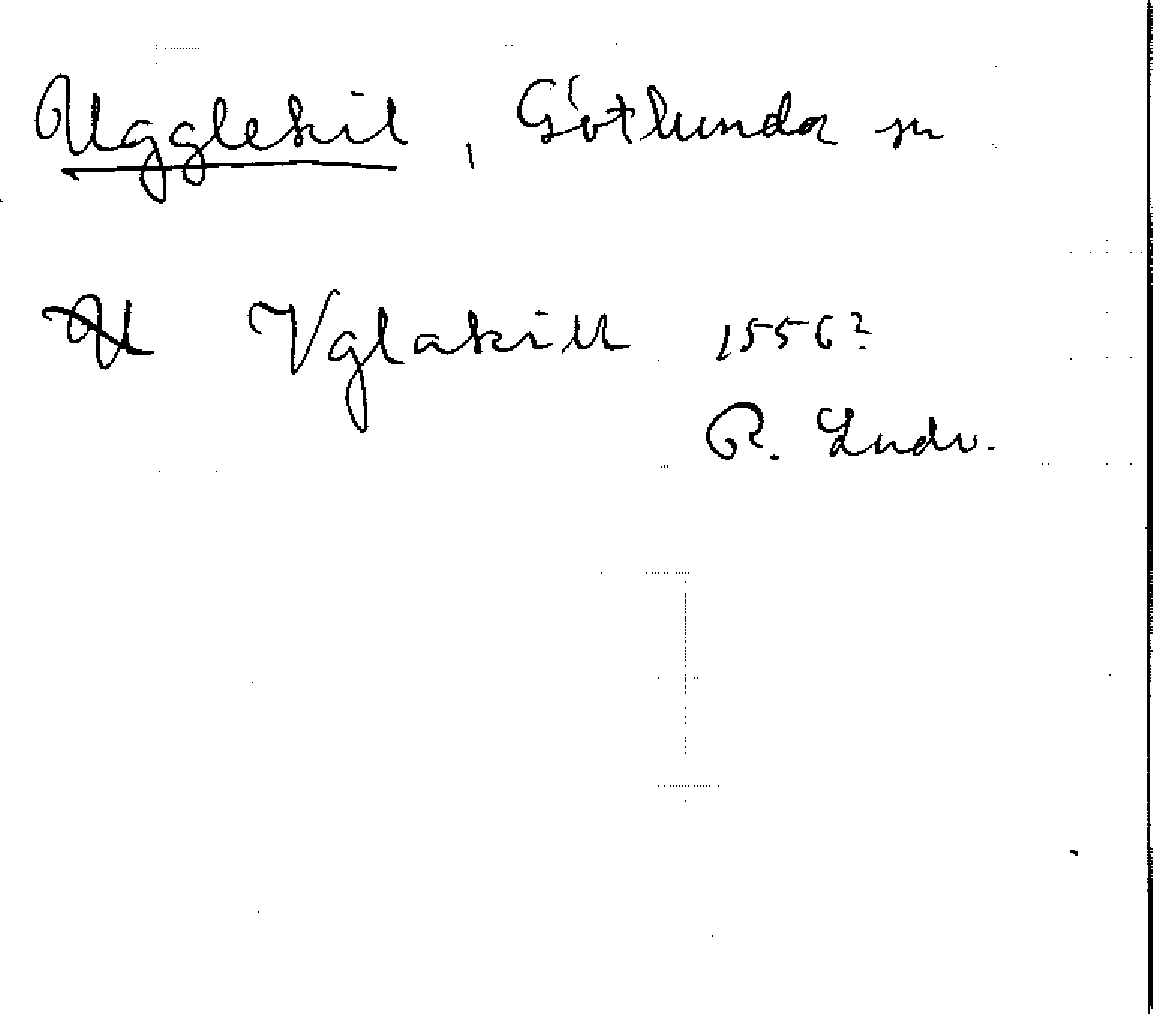 Ugglekil, Götlunda sn
Vglakill 1556?
R. Ludv.